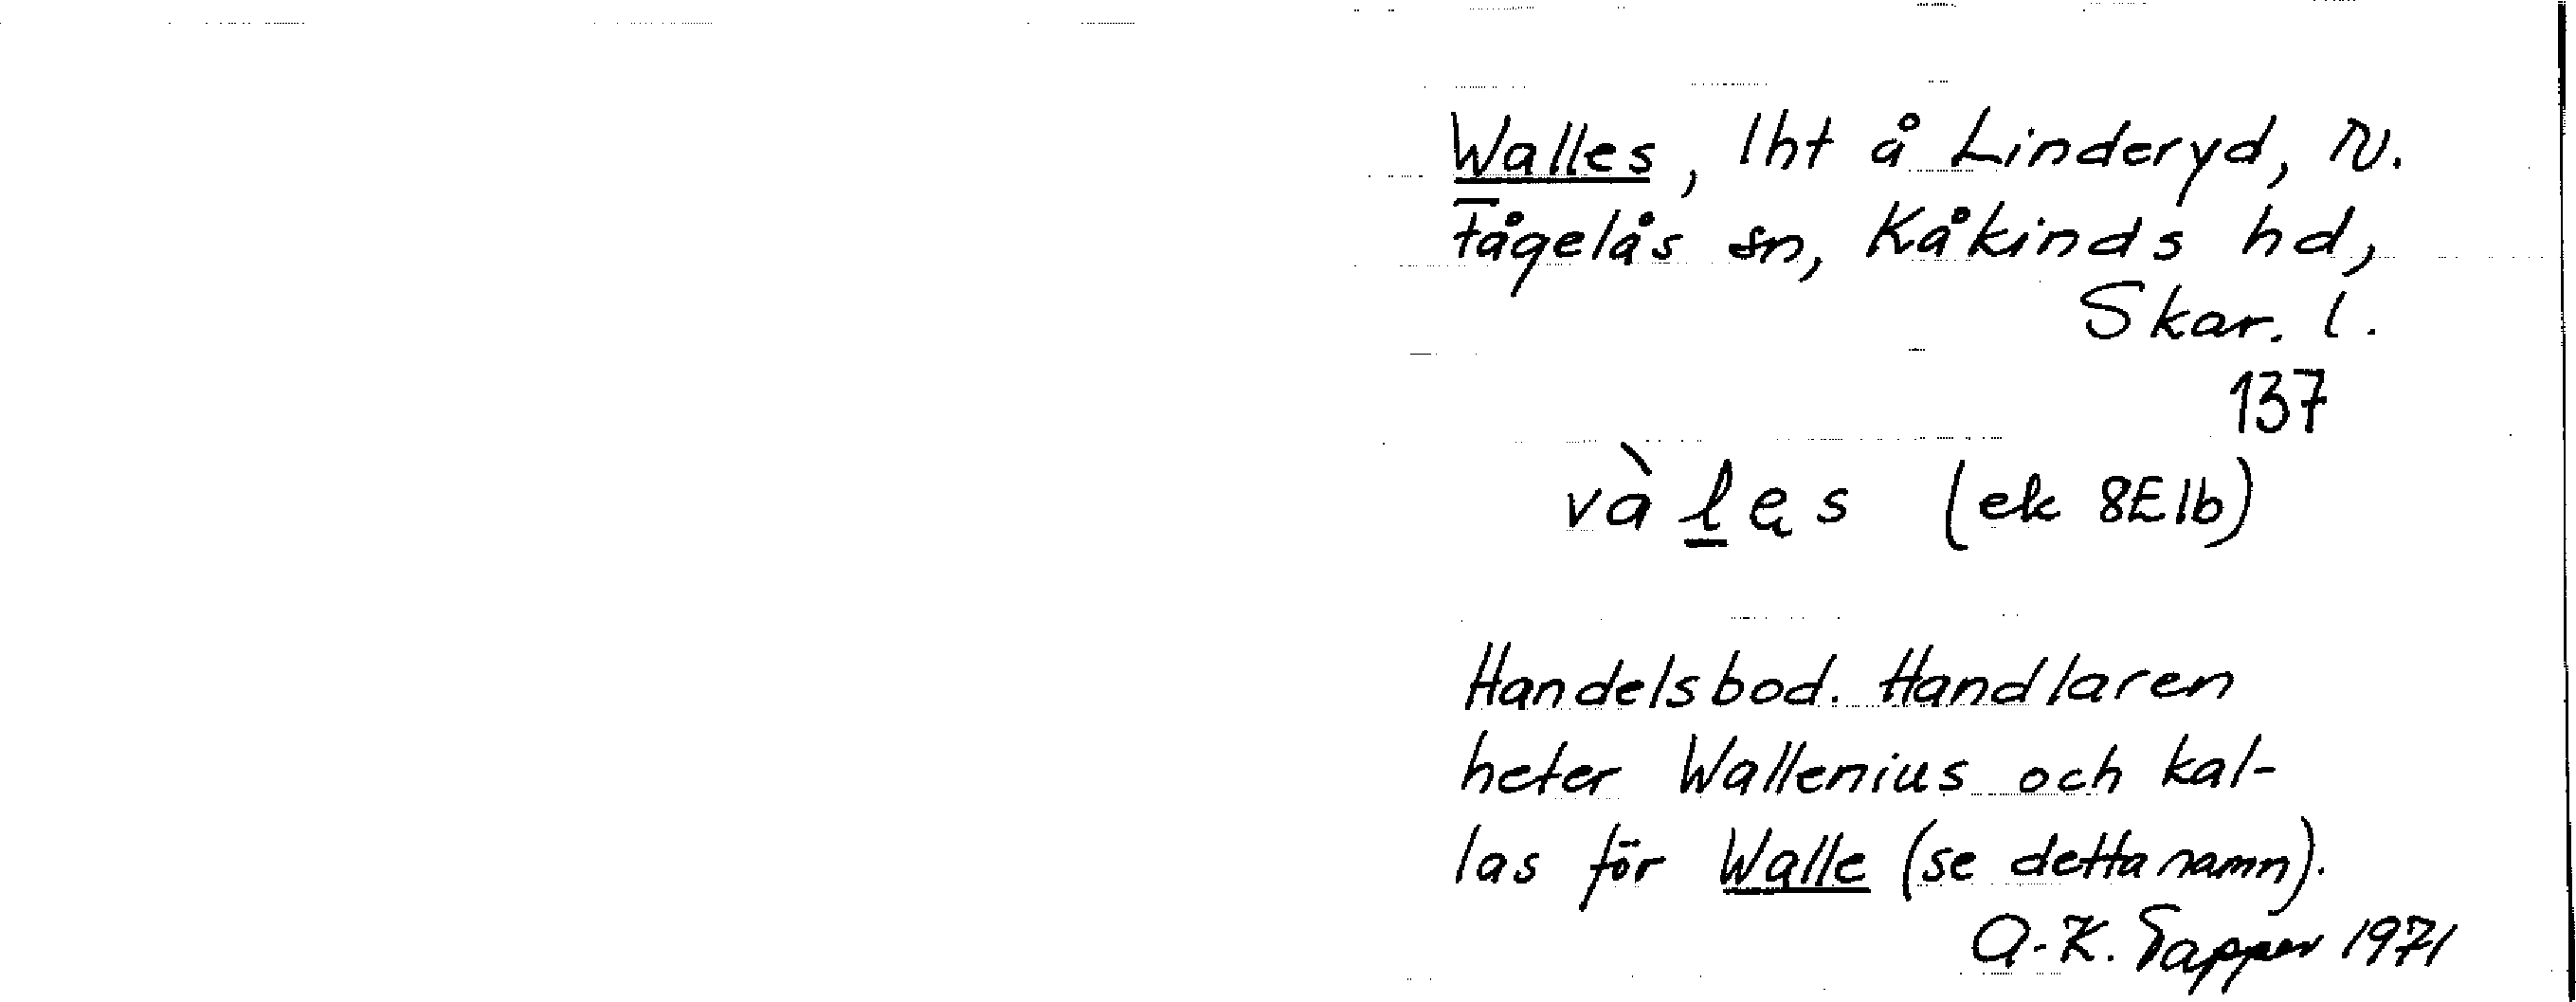 Walles, lht å Linderyd, N.
Fågelås sn, Kåkinds hd,
Skar. l.
137
vàl̲ęs (ek 8E1b)
Handelsbod. Handlaren
heter Wallenius och kal-
las för Walle (se detta namn).
A-K. Tapper 1971